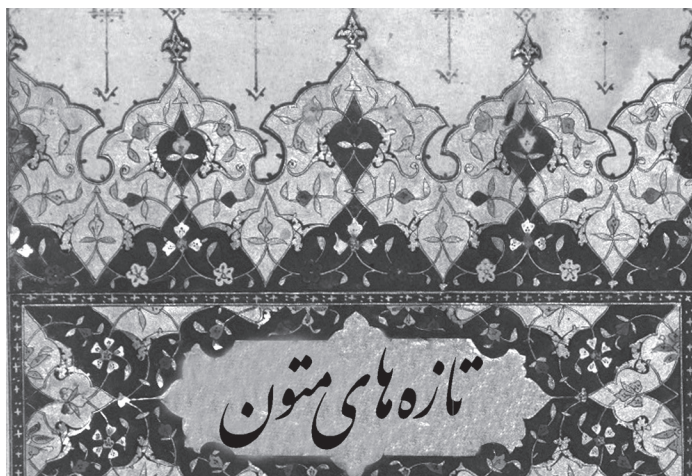 تازه های متون